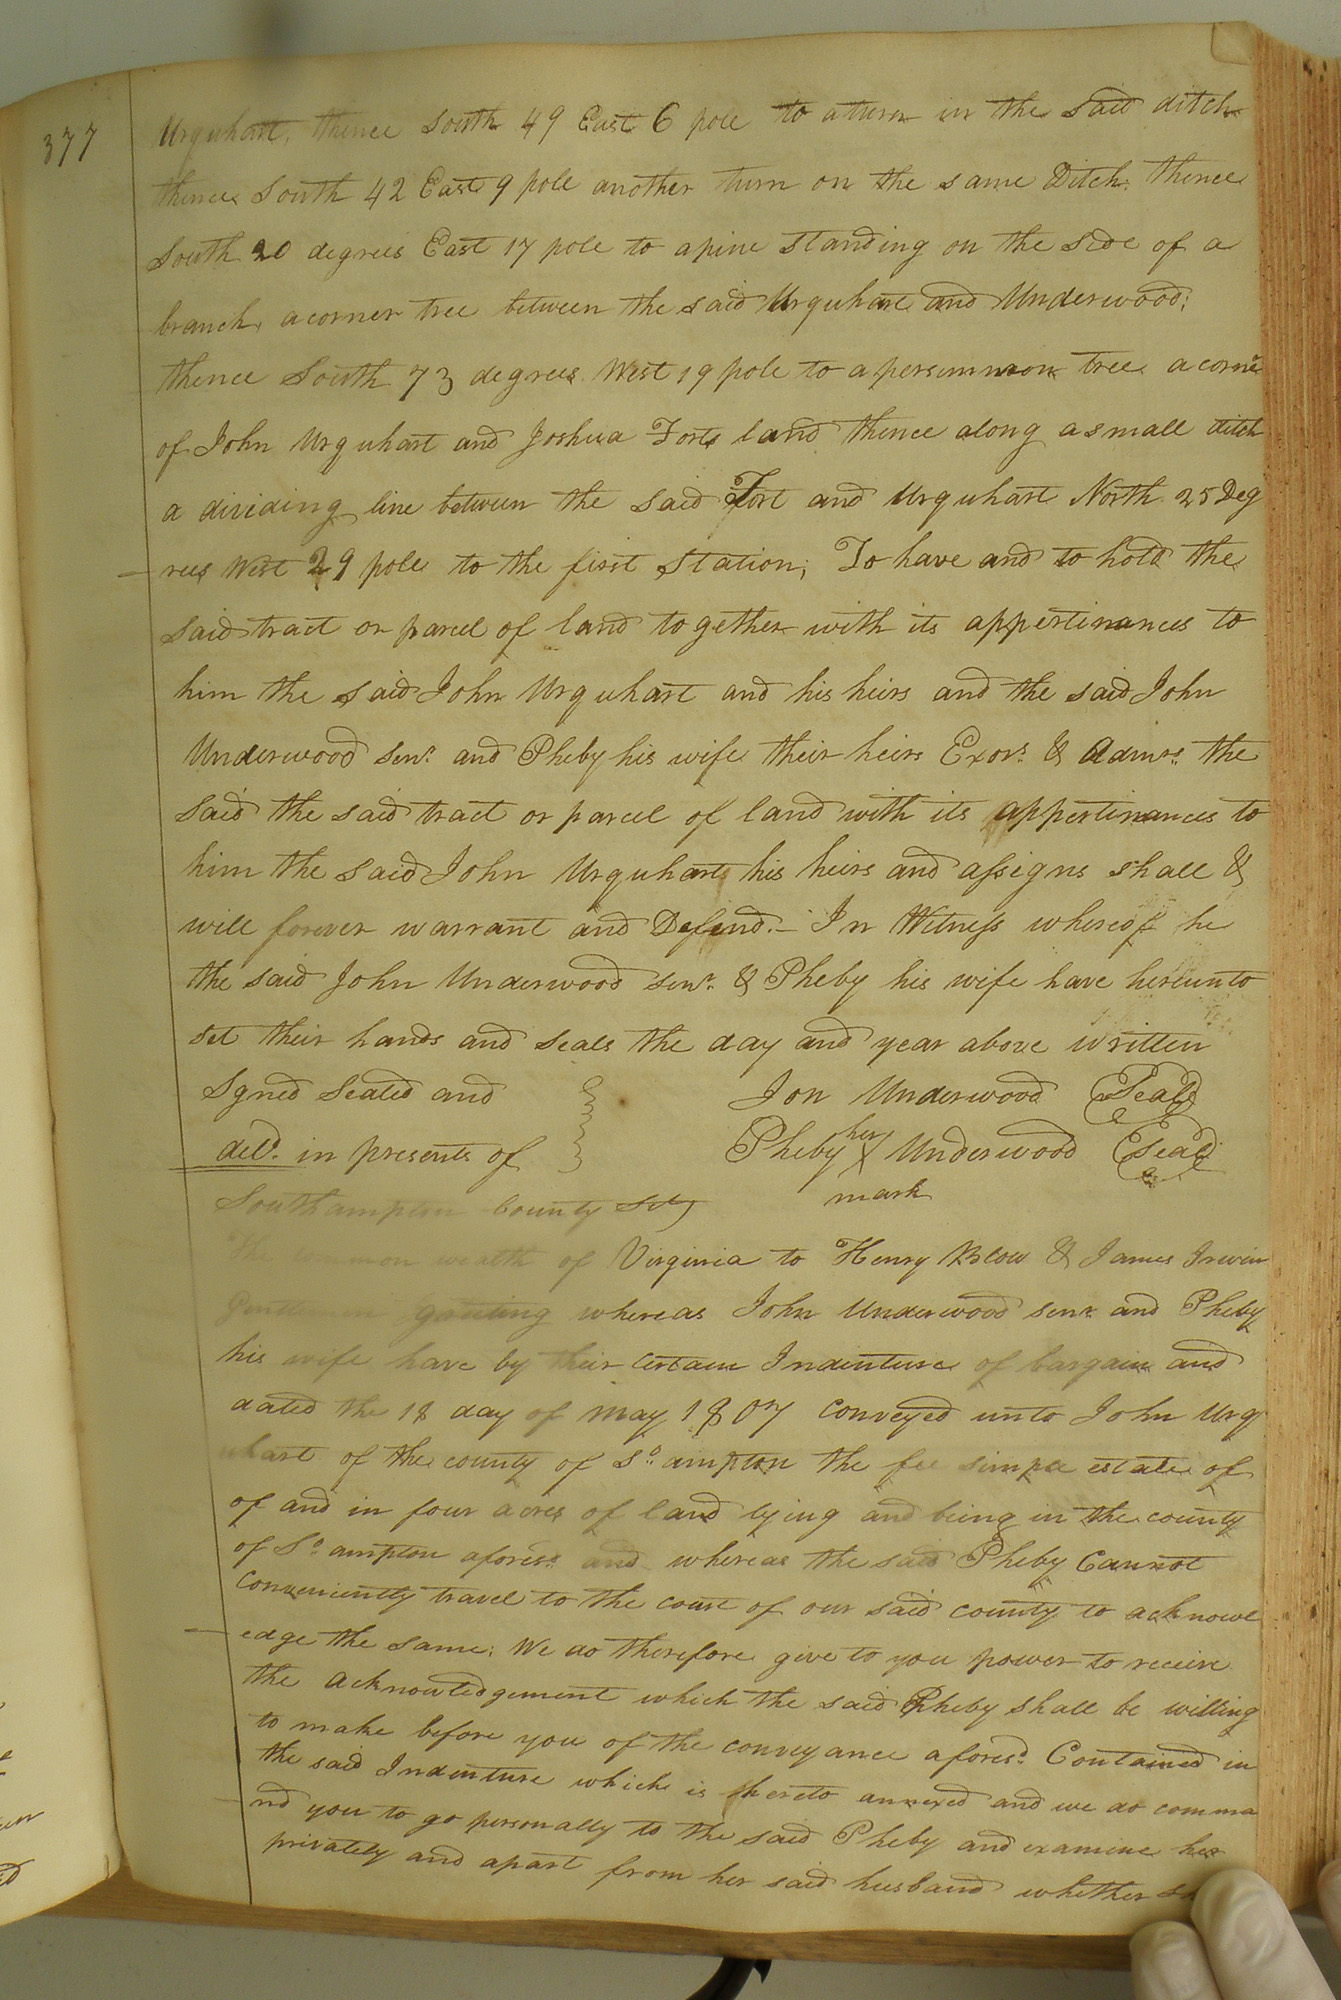 377
Urquhart, thence South 49 East 6 pole to a turn in the said ditch
thence South 42 East 9 pole another turn on the same Ditch. thence
South 20 degrees East 17 pole to a pine standing on the side of a
branch, a corner tree between the said Urquhart and Underwood;
thence South 73 degrees West 19 pole to a persimmon tree a corne
of John Urquhart and Joshua Forts land thence along a small ditch
a dividing line between the said Fort and Urquhart North 25 Deg
rees West 29 pole to the first Station; To have and to hold the
said tract or parcel of land together with its appertinances to
him the said John Urquhart and his heirs and the said John
Underwood senr. and Pheby his wife their heirs Exors. & Admrs. the
said the said tract or parcel of land with its appertinances to
him the said John Urquhart his heirs and assigns shall &
will forever warrant and Defend.- In Witness whereof he
the said John Underwood senr. & Pheby his wife have hereunto
set their hands and seals the day and year above written
Sgned Sealed and Jon Underwood Seal
deld. in presents of Pheby her X Underwood Seal
mark
Southampton County
The common wealth of Virginia to Henry Blow & James Irwin
Gentlemen whereas John Underwood senr and Pheby
his wife have by their certain Indenture of bargain and
dated the 18 day of may 1807 conveyed unto John Urq
uhart of the county of So. ampton the fee simple estate of
of and in four acres of land lying and being in the county
of So. ampton aforesd. and whereas the said Pheby Cannot
conveniently travel to the court of our said county to acknowl
edge the same; We do therefore give to you power to receive
the acknowledgement which the said Pheby shall be willing
to make before you of the conveyance aforesd. Contained in
the said Indenture which is hereto annexed and we do comma
nd you to go personally to the said Pheby and examine her
privately and apart from her said husband whether